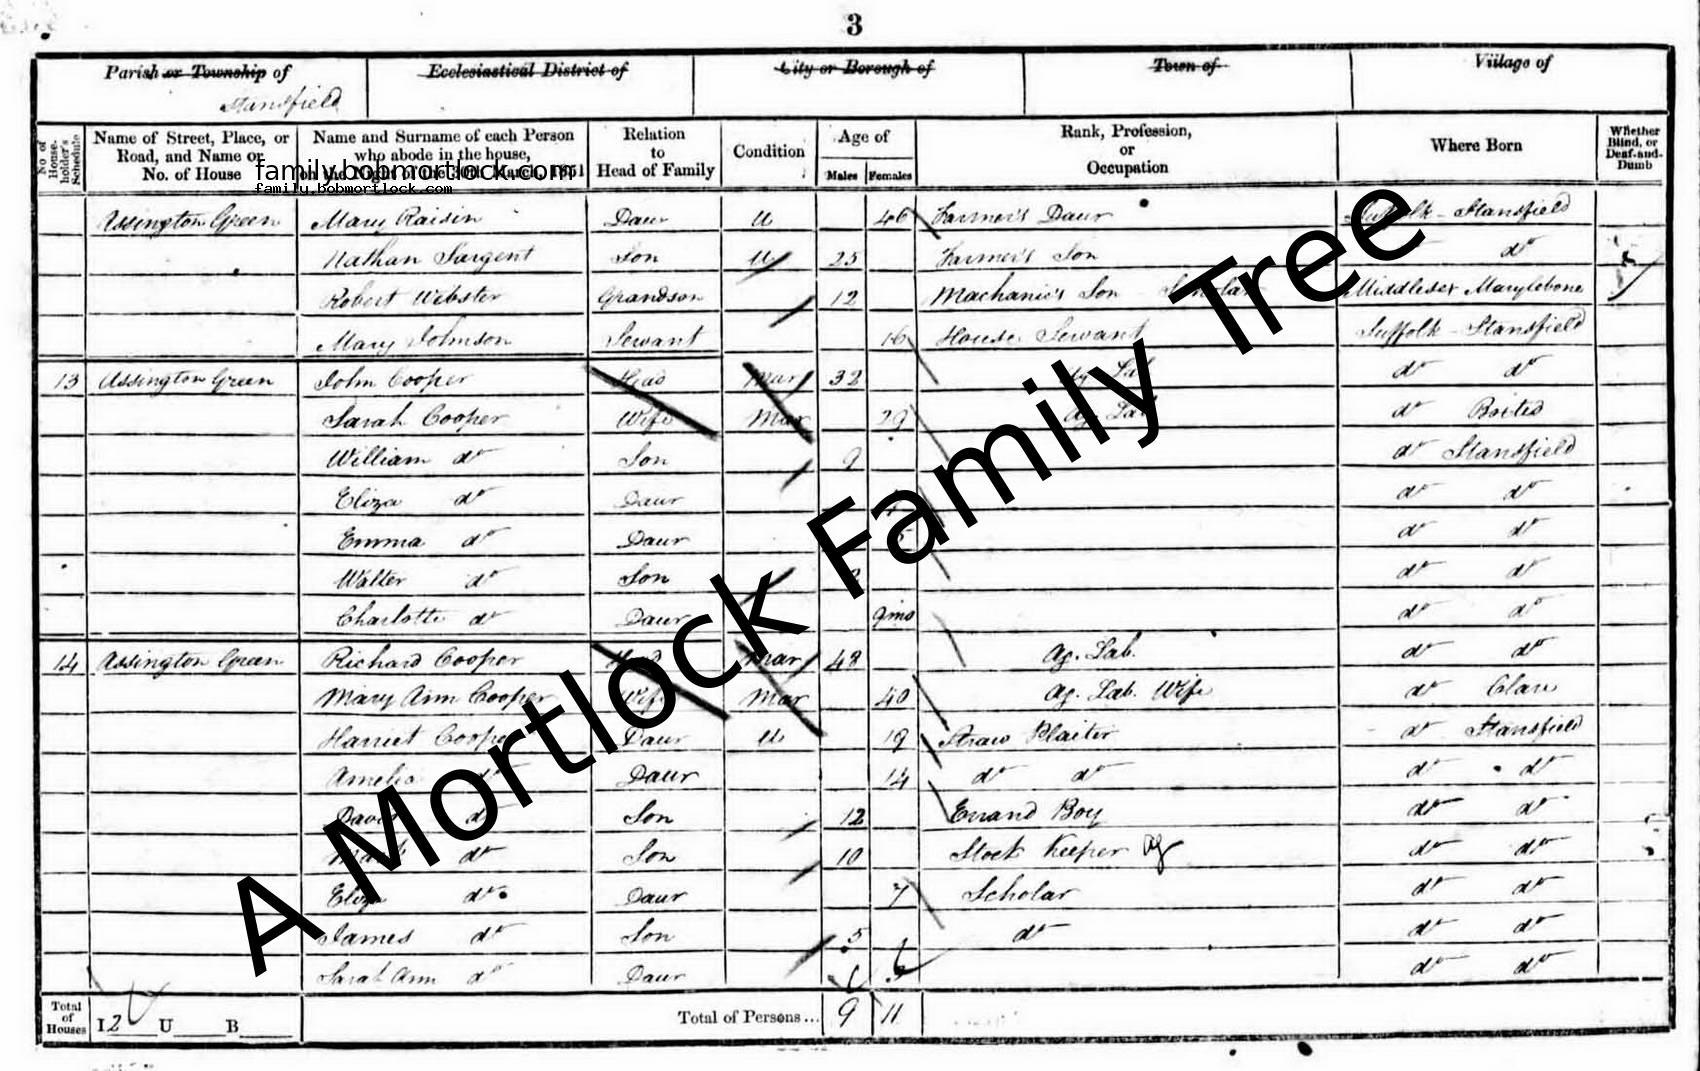 3
Parish or Township of Stansfield | Ecclesiastical District of | City or Borough of | Town of | Village of
No. of House-holder's Schedule | Name of Street, Place, or Road, and Name or No. of House | Name and Surname of each Person who abode in the house, on the Night of the 30th March, 1851 | Relation to Head of Family | Condition | Age of Males Females | Rank, Profession, or Occupation | Where Born | Whether Blind, or Deaf-and-Dumb
family.bobmortlock.com
family.bobmortlock.com
Assington Green Mary Raisin Daur U 46 Farmer's Daur Suffolk - Stansfield
Nathan Sargent Son U 25 Farmer's Son do
Robert Webster Grandson 12 Machanic's Son Scholar Middlesex Marylebone
Mary Johnson Servant 16 House Servant Suffolk - Stansfield
13 Assington Green John Cooper Head Mar 32 Ag Lab do do
Sarah Cooper Wife Mar 29 Ag Lab do
William do Son 9 do Stansfield
Eliza do Daur do do
Emma do Daur do do
Walter do Son do do
Charlotte do Daur 9mo do do
14 Assington Green Richard Cooper Head Mar 48 Ag. Lab. do do
Mary Ann Cooper Wife Mar 40 Ag. Lab. Wife do Clare
Harriet Cooper Daur U 19 Straw Plaiter do Stansfield
Amelia do Daur 14 do do do do
David do Son 12 Errand Boy do do
Mark do Son 10 Stock Keeper Ag do do
Eliza do Daur 7 Scholar do do
James do Son 5 do do do
Sarah Ann do Daur do do
Total of Houses I 2 U B Total of Persons... 9 11
A Mortlock Family Tree